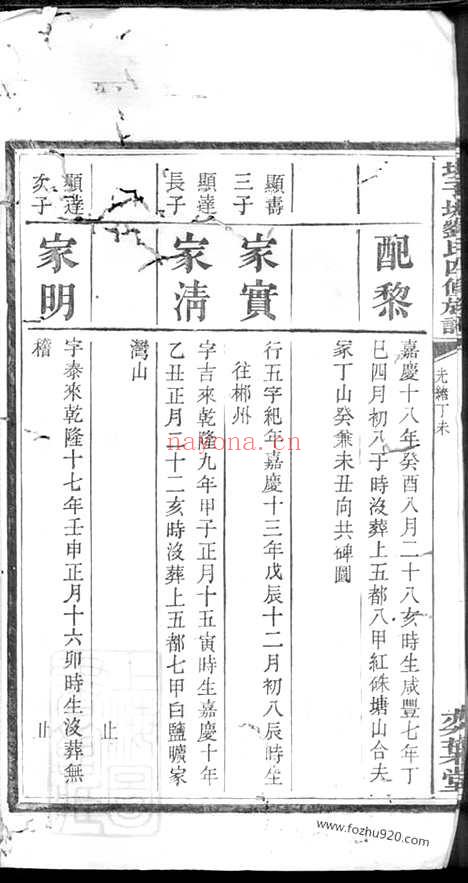 劉氏四修族譜
光緒丁未
奕葉堂
配黎
嘉慶十八年癸酉八月二十八亥時生咸豐七年丁
巳四月初八子時沒葬上五都八甲紅硃塘山合夫
冢丁山癸兼未丑向共碑圖
顯壽
三子
家實
行五字紀年嘉慶十三年戊辰十二月初八辰時生
往郴州
顯達
長子
家清
字吉來乾隆九年甲子正月十五寅時生嘉慶十年
乙丑正月二十二亥時沒葬上五都七甲白鹽曠家
灣山
止
顯達
次子
家明
字泰來乾隆十七年壬申正月十六卯時生沒葬無
稽
止
navona.cn
www.fozhu920.com